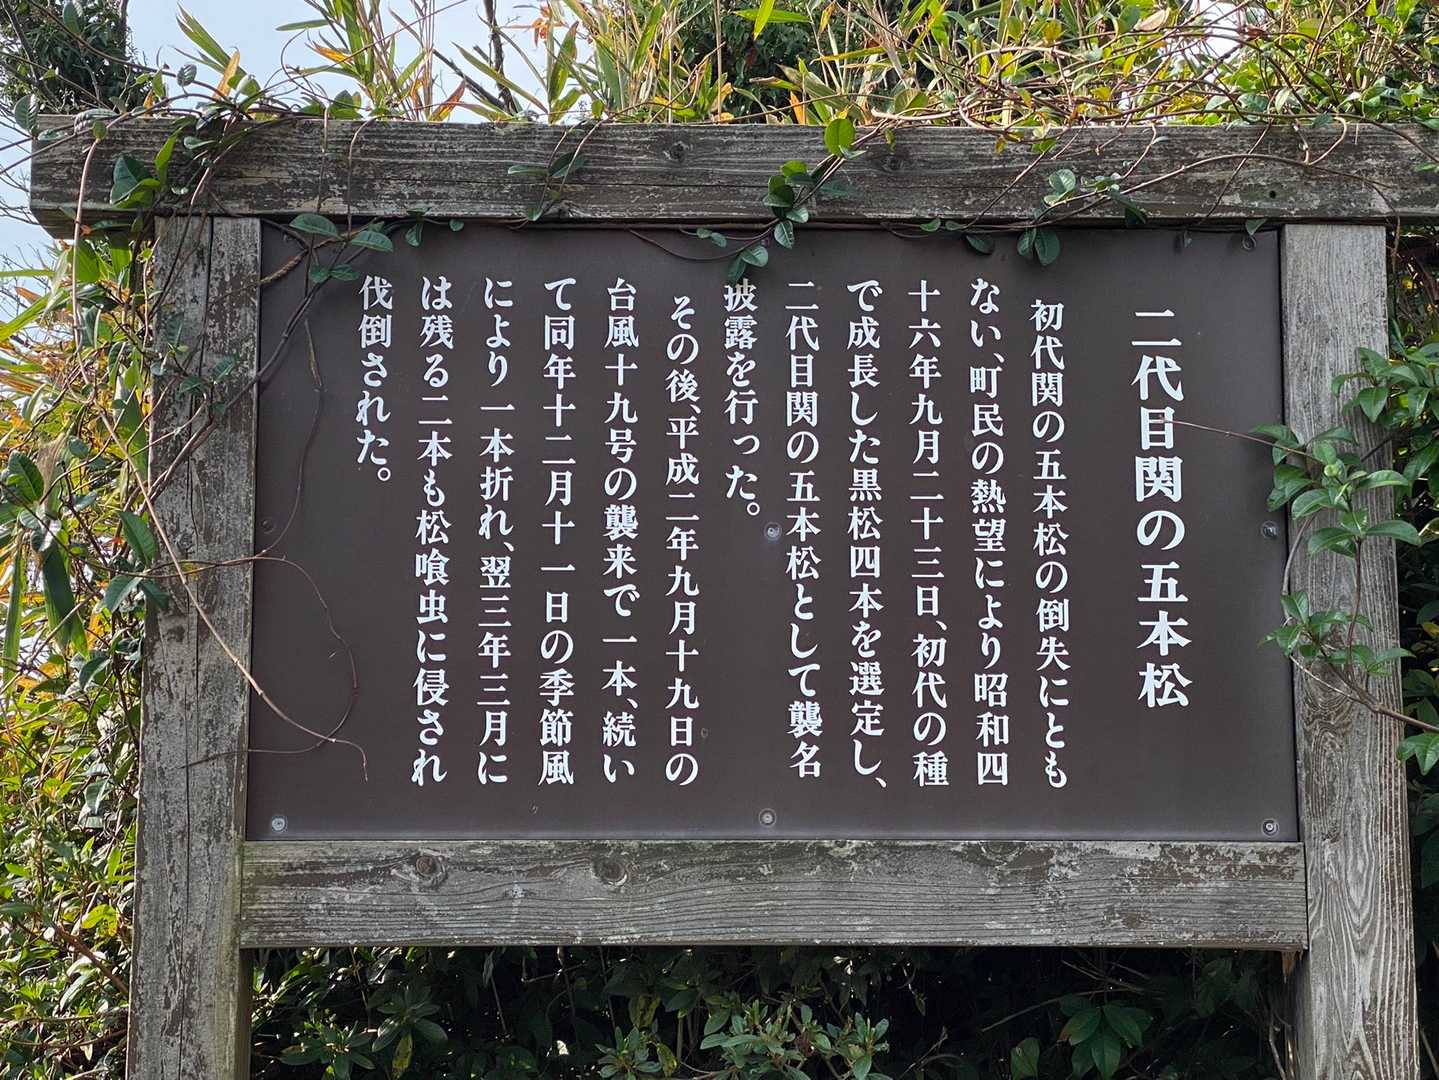 二代目関の五本松
初代関の五本松の倒失にとも
ない、町民の熱望により昭和四
十六年九月二十三日、初代の種
で成長した黒松四本を選定し、
二代目関の五本松として襲名
披露を行った。
その後、平成二年九月十九日の
台風十九号の襲来で一本、続い
て同年十二月十一日の季節風
により一本折れ、翌三年三月に
は残る二本も松喰虫に侵され
伐倒された。